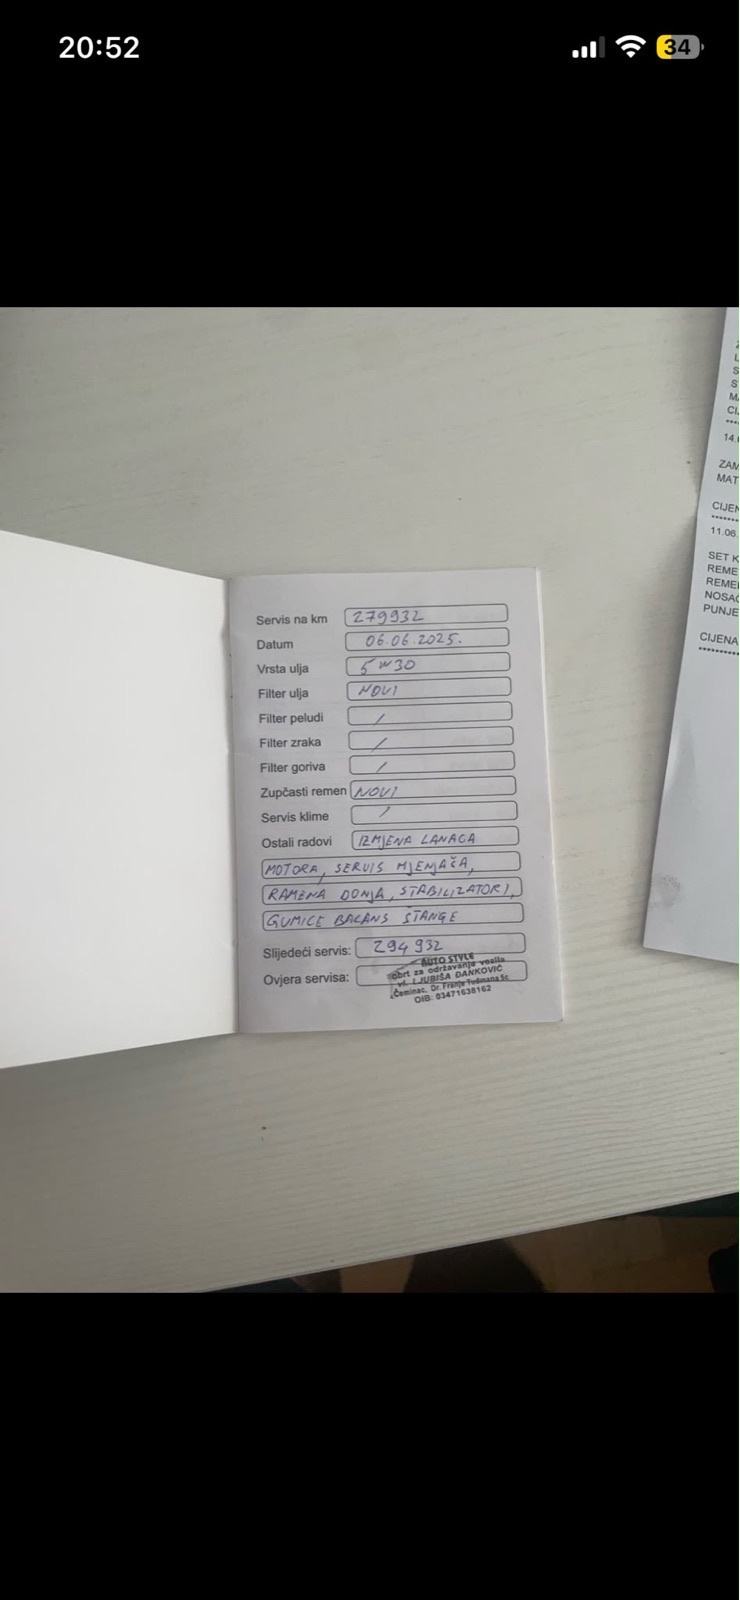 20:52
34
Servis na km 279932
Datum 06.06.2025.
Vrsta ulja 5W30
Filter ulja NOVI
Filter peludi /
Filter zraka /
Filter goriva /
Zupčasti remen NOVI
Servis klime /
Ostali radovi IZMJENA LANACA
MOTORA, SERVIS MJENJAČA,
RAMENA DONJA, STABILIZATORI,
GUMICE BALANS ŠTANGE
Slijedeći servis: 294932
Ovjera servisa:
AUTO STYLE
obrt za održavanje vozila
vl. LJUBIŠA DANKOVIĆ
Čeminac, Dr. Franje Tuđmana 5c
OIB: 03471638162
L
S
S
MA
CI
****
14.
ZAM
MAT
CIJEN
********
11.06.
SET K
REME
REME
NOSAČ
PUNJE
CIJENA
**********